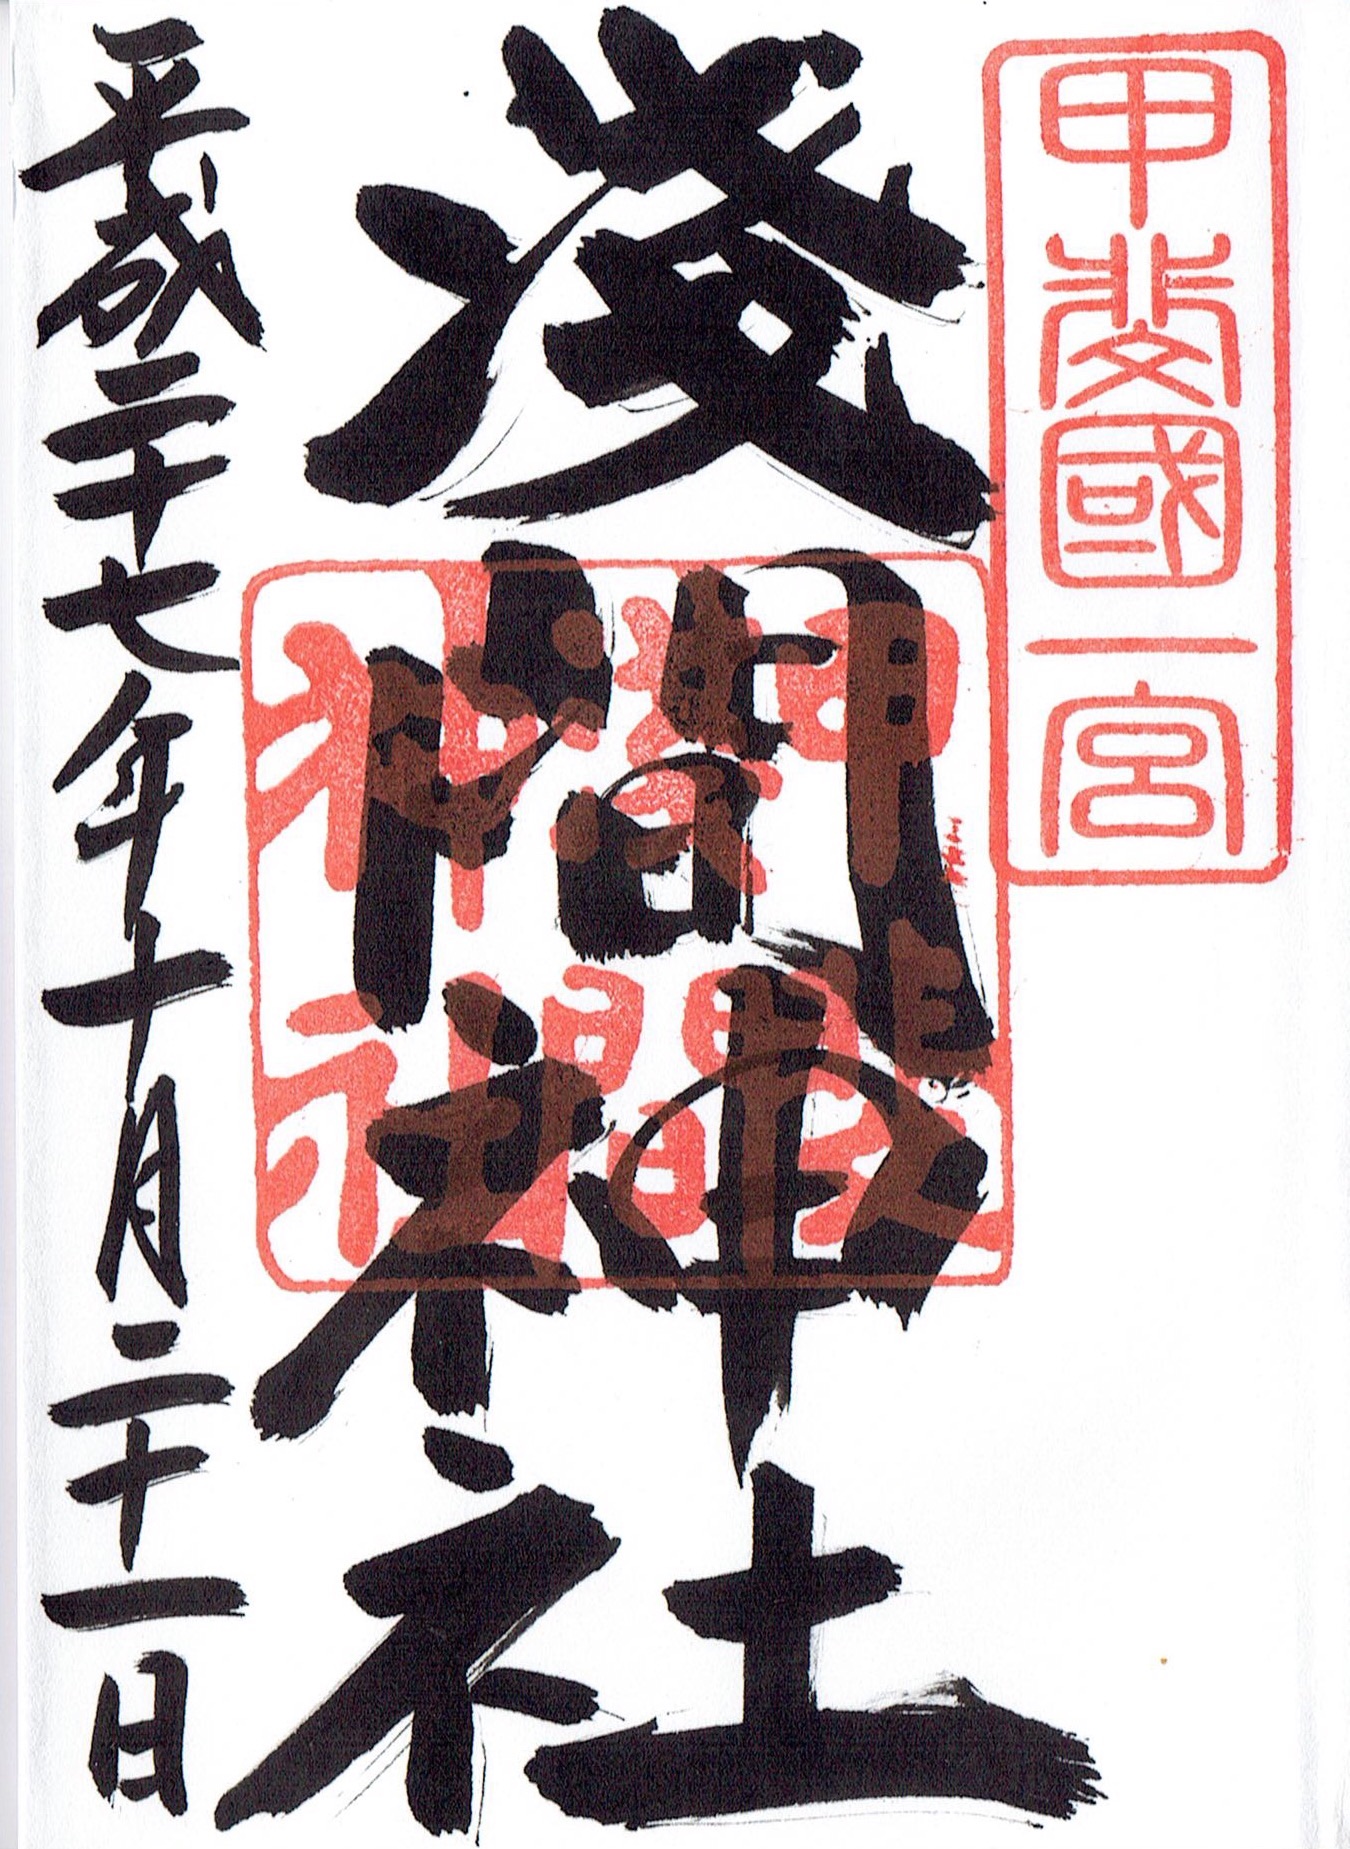 甲斐國一宮
淺間神社
平成二十七年十月二十一日